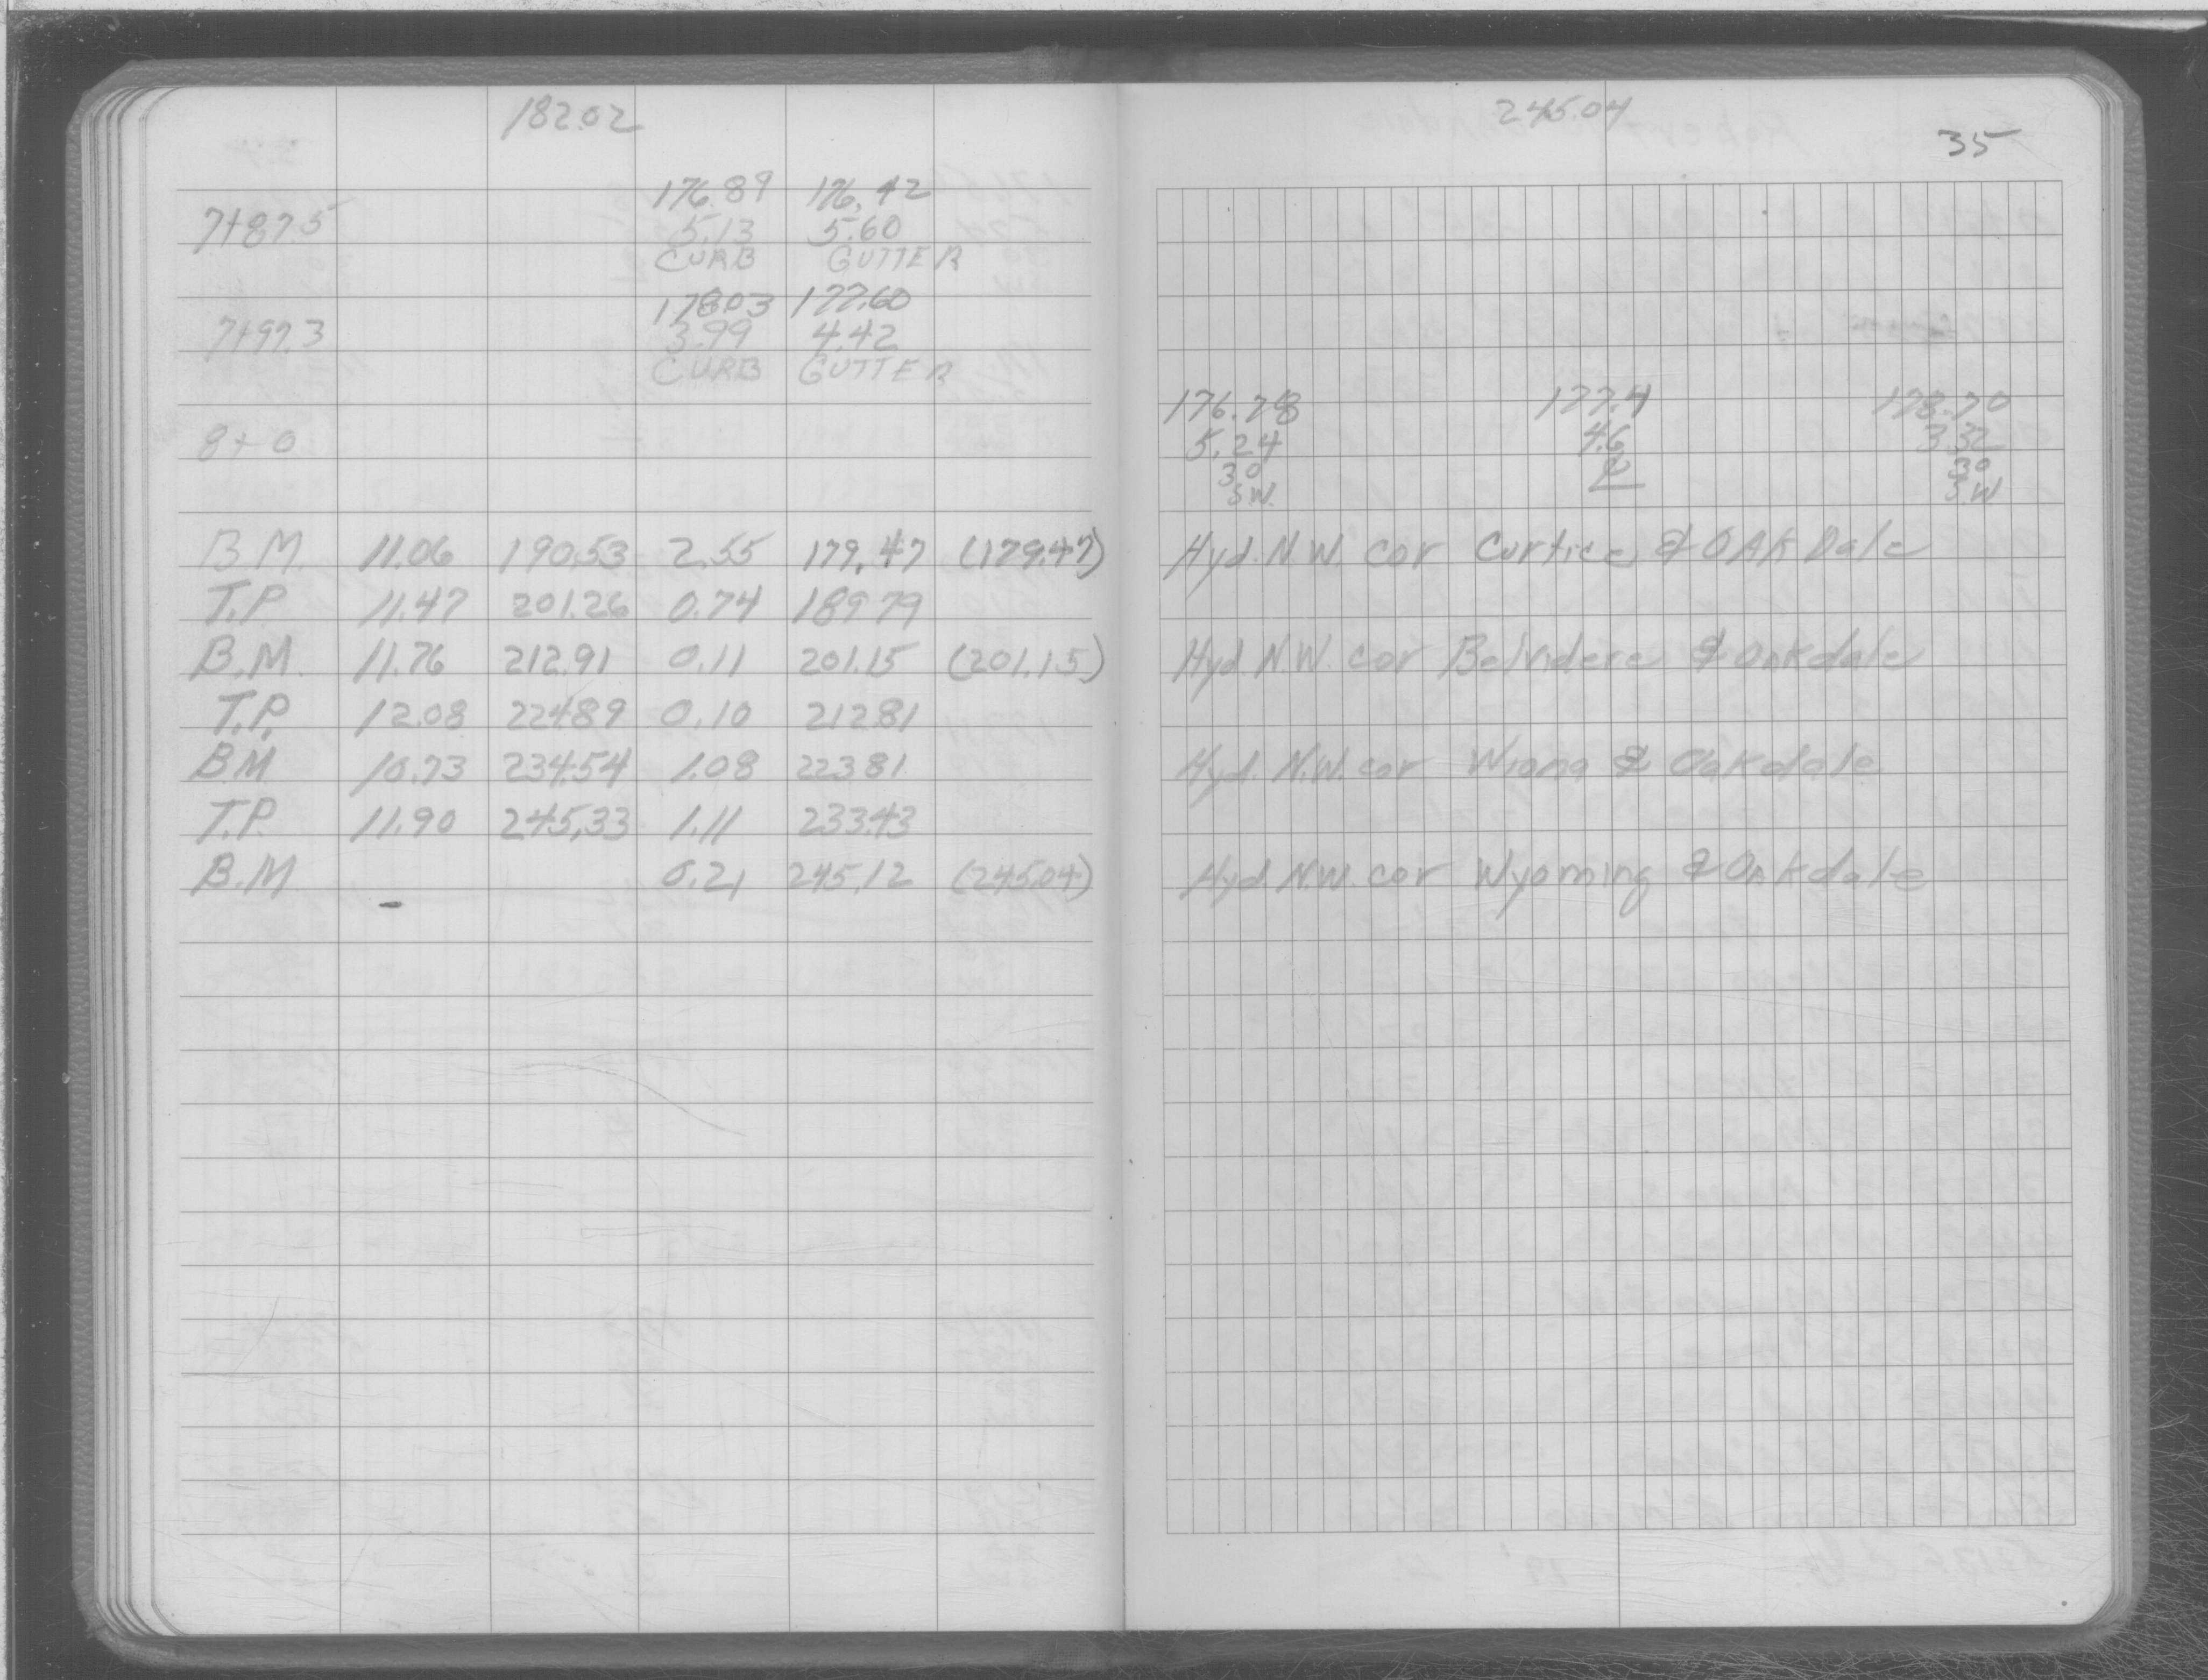 182.02
245.04
35
176.89 176.42
7+87.5 5.13 5.60
CURB GUTTER
178.03 177.60
7+97.3 3.99 4.42
CURB GUTTER
176.78 177.4 178.70
8+0 5.24 4.6 3.32
30 ℄ 30
SW. SW
B.M. 11.06 190.53 2.55 179.47 (179.47) Hyd. N.W. cor Curtice & OAK Dale
T.P. 11.47 201.26 0.74 189.79
B.M. 11.76 212.91 0.11 201.15 (201.15) Hyd. N.W. cor Belvidere & Oakdale
T.P. 12.08 224.89 0.10 212.81
BM 10.73 234.54 1.08 223.81 Hyd. N.W. cor Wiona & Oakdale
T.P. 11.90 245.33 1.11 233.43
B.M 0.21 245.12 (245.04) Hyd. N.W. cor Wyoming & Oakdale